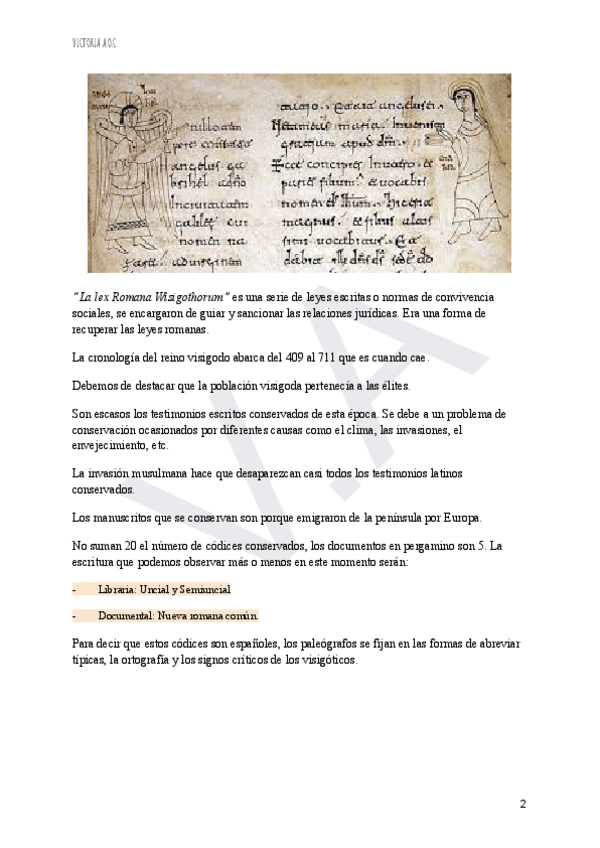 VICTORIA A.O.C
angelus ga
nomen
"La lex Romana Wisigothorum" es una serie de leyes escritas o normas de convivencia
sociales, se encargaron de guiar y sancionar las relaciones jurídicas. Era una forma de
recuperar las leyes romanas.
La cronología del reino visigodo abarca del 409 al 711 que es cuando cae.
Debemos de destacar que la población visigoda pertenecía a las élites.
Son escasos los testimonios escritos conservados de esta época. Se debe a un problema de
conservación ocasionados por diferentes causas como el clima, las invasiones, el
envejecimiento, etc.
La invasión musulmana hace que desaparezcan casi todos los testimonios latinos
conservados.
Los manuscritos que se conservan son porque emigraron de la península por Europa.
No suman 20 el número de códices conservados, los documentos en pergamino son 5. La
escritura que podemos observar más o menos en este momento serán:
- Libraria: Uncial y Semiuncial
- Documental: Nueva romana común.
Para decir que estos códices son españoles, los paleógrafos se fijan en las formas de abreviar
típicas, la ortografía y los signos críticos de los visigóticos.
V.A
2